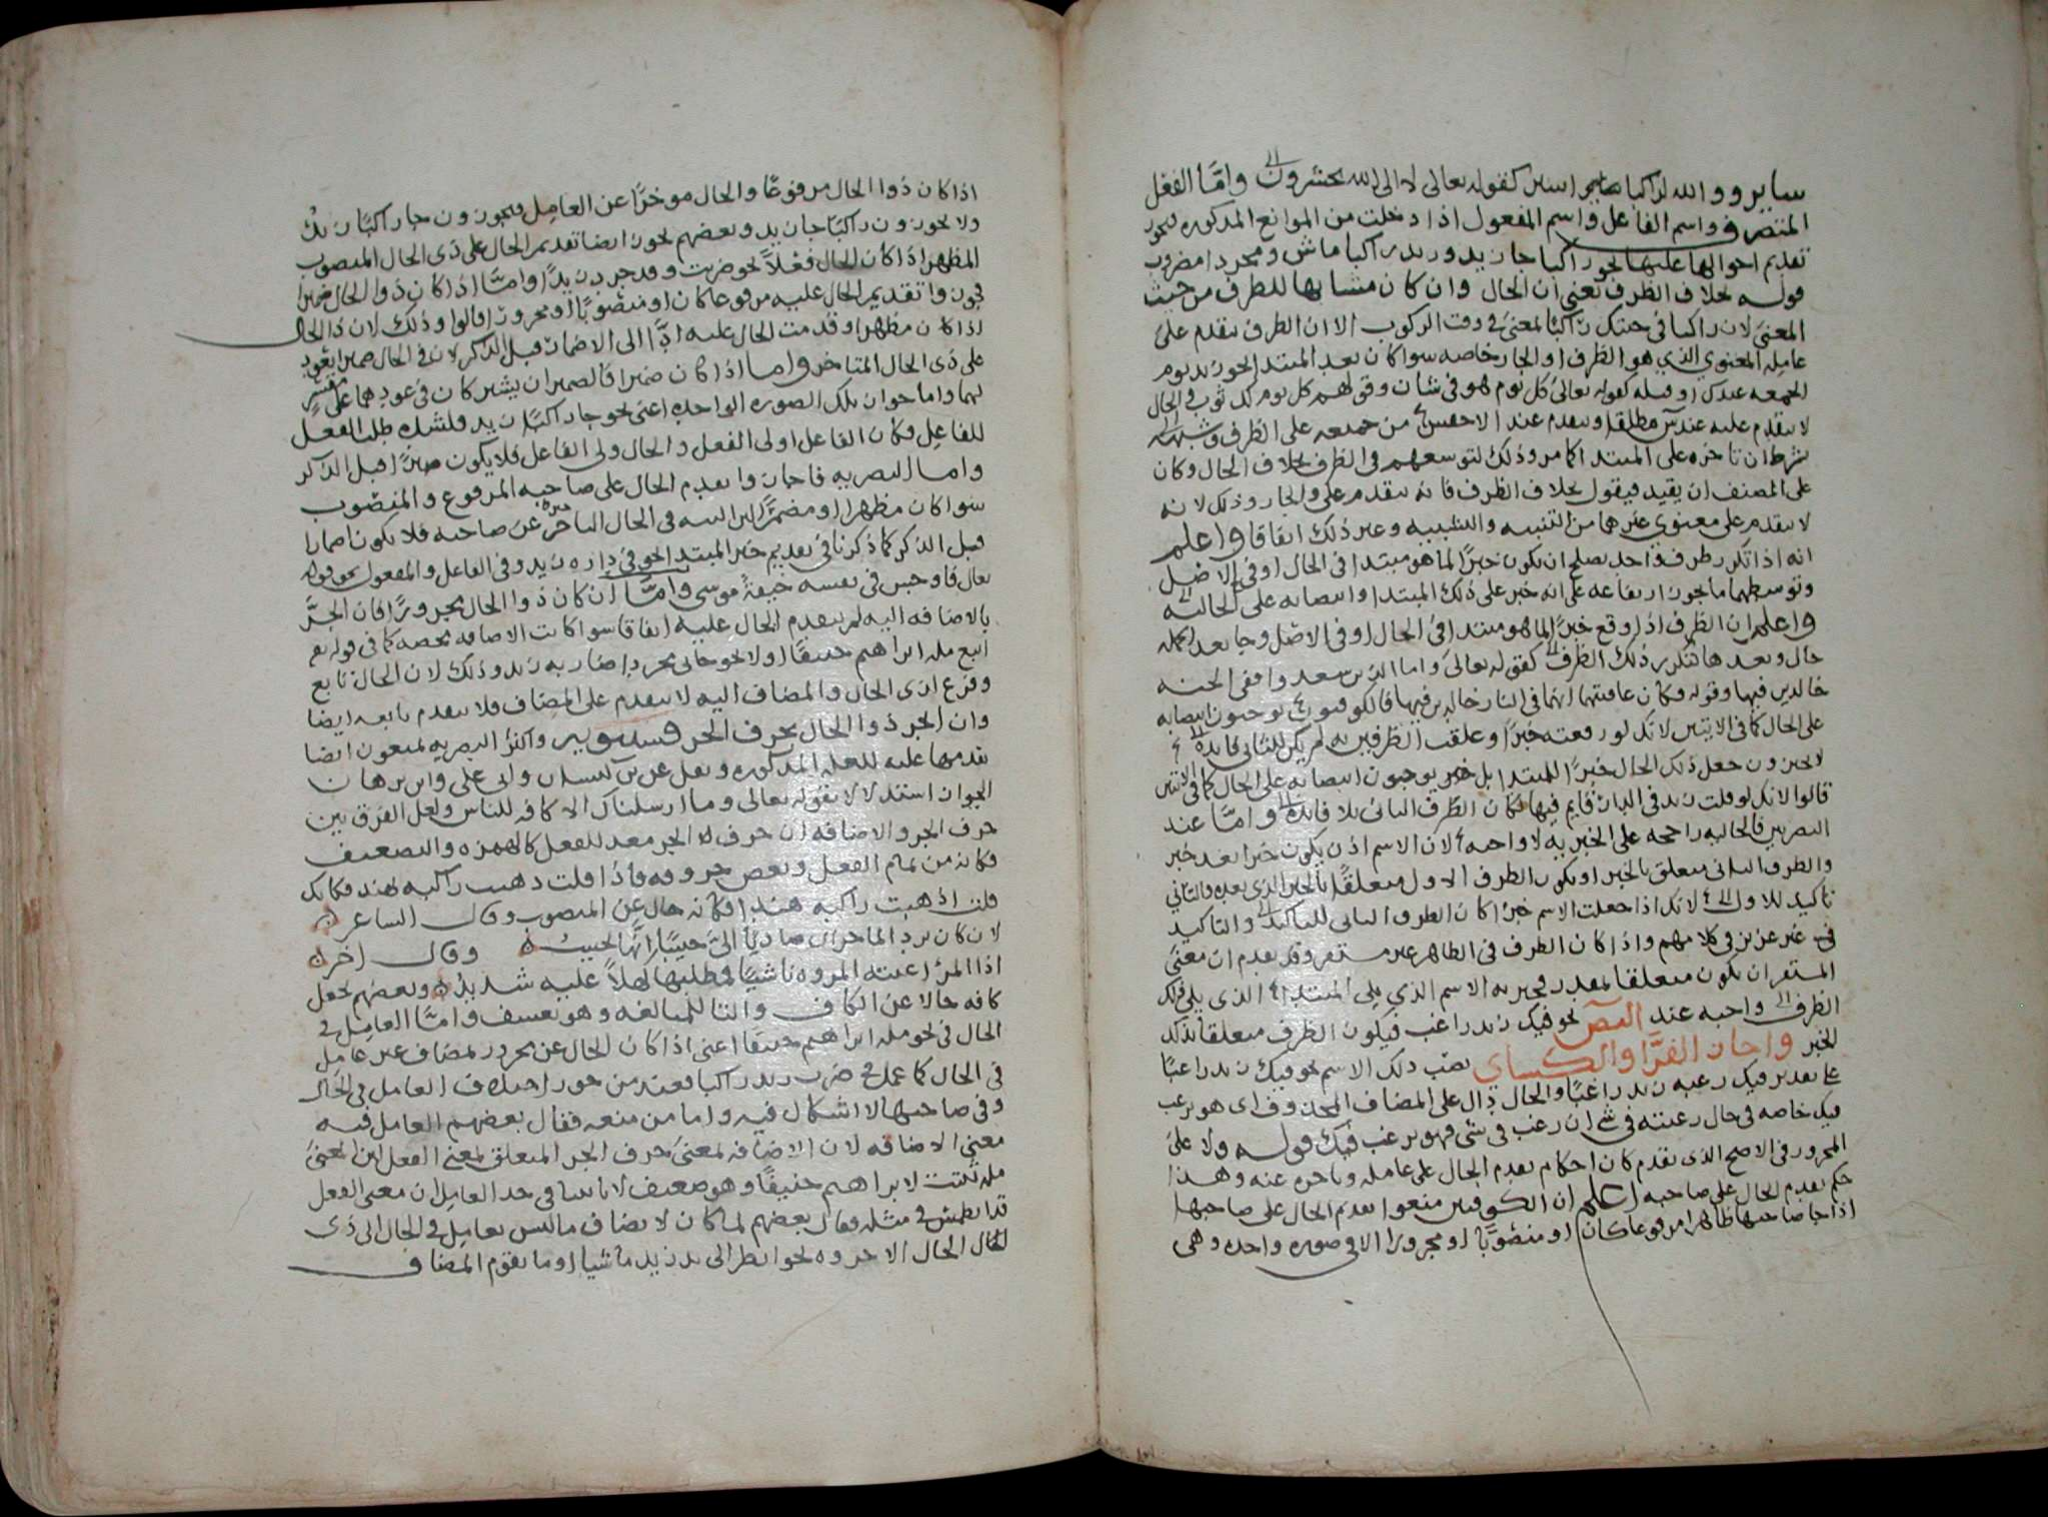 ساير ووالله لراكبا كقوله تعالى لا الى الله تحشرون واما الفعل
المتصرف واسم الفاعل واسم المفعول اذا دخلت من الموانع المذكوره فيجوز
تقديم احوالها عليها نحو راكبا جا زيد وزيد راكبا ماش ومجردا مضروب
قوله بخلاف الظرف يعني ان الحال وان كان مشابها للظرف من حيث
المعنى لان راكبا في جئتك راكبا بمعنى في وقت الركوب الا ان الظرف يتقدم على
عامله المعنوي الذي هو الظرف او الجار خاصه سوا كان بعد المبتدا نحو زيد يوم
الجمعه عندك او قبله كقوله تعالى كل يوم هو في شان وقولهم كل يوم لك ثوب والحال
لا يتقدم عليه عند س مطلقا ويتقدم عند الاخفش من جميعه على الظرف وشبهه
بشرط ان تاخره على المبتدا كما مر وذلك لتوسعهم في الظرف بخلاف الحال وكان
على المصنف ان يقيد فيقول بخلاف الظرف فانه يتقدم عليه والجار وذلك لانه
لا يتقدم على معنوي غيرهما من التنبيه والتشبيه وغير ذلك اتفاقا واعلم
انه اذا تكرر ظرف واحد يصلح ان يكون خبرا لما هو مبتدا في الحال او في الاصل
وتوسطهما ما يجوز ارتفاعه على انه خبر على ذلك المبتدا وانتصابه على الحاليه
واعلم ان الظرف اذا وقع خبرا لما هو مبتدا في الحال او في الاصل وجا بعد
حال وبعدها تكرر ذلك الظرف كقوله تعالى واما الذين سعدوا ففي الجنه
خالدين فيها وقوله فكان عاقبتهما انهما في النار خالدين فيها فالكوفيون يوجبون انتصابه
على الحال كما في الايتين لانك لو رفعته خبرا وعلقت الظرفين به لم يكن للثاني فايده
لا يجيزون جعل ذلك الحال خبرا للمبتدا بل يوجبون انتصابه على الحال كما في الايتين
قالوا لانك لو قلت زيد في الدار قايم فيها فكان الظرف الثاني بلا فايده واما عند
البصريين فالحاليه راجحه على الخبريه لا واجبه لان الاسم اذن يكون خبرا بعد خبر
والظرف الثاني متعلق بالخبر او يكون الظرف الاول متعلقا بالخبر الذي بعده والثاني
تاكيد للاول لانك اذا جعلت الاسم خبرا كان الظرف الثاني للتاكيد والتاكيد
غير عزيز في كلامهم واذا كان الظرف في الظاهر غير مستقر وقد تقدم ان معنى
المستقر ان يكون متعلقا بمقدر فخبريه الاسم الذي يلي المبتدا الذي يلي ذلك
الظرف واجبه عند البص نحو فيك زيد راغب فيكون الظرف متعلقا بذلك
الخبر واجاز الفرا والكساي نصب ذلك الاسم نحو فيك زيد راغبا
على تقدير فيك رغبه زيد راغبا والحال دال على المضاف المحذوف اي هو يرغب
فيك خاصه في حال رغبته في شي اي ان رغب في شي فهو يرغب فيك قوله ولا على
المجرور في الاصح الذي تقدم كان احكام تقدم الحال على عامله وتاخره عنه وهذا
حكم تقدم الحال على صاحبه اعلم ان الكوفيين منعوا تقديم الحال على صاحبها
اذا جا صاحبها ظاهرا مرفوعا كان او منصوبا او مجرورا الا في صوره واحده وهي
اذا كان ذوا الحال مرفوعا والحال موخرا عن العامل فيجوزون جا راكبا زيد
ولا يجوزون راكبا جا زيد وبعضهم يجوز ايضا تقديم الحال على ذي الحال المنصوب
المظهر اذا كان الحال فعلا نحو ضربت وقد جرد زيدا واما اذا كان ذوا الحال ضميرا
فجوزوا تقديم الحال عليه مرفوعا كان او منصوبا او مجرورا قالوا وذلك لان ذا الحال
اذا كان مظهرا وقدمت الحال عليه ادا الى الاضمار قبل الذكر لان في الحال ضميرا يعود
على ذي الحال المتاخر واما اذا كان ضميرا فالضميران يشتركان في عودهما على مفسر
لهما واما جواز تلك الصوره الواحده اعني نحو جا راكبا زيد فلشده طلب الفعل
للفاعل فكان الفاعل اولى الفعل والحال ولي الفاعل فلا يكون ضميرا قبل الذكر
واما البصريه فاجازوا تقديم الحال على صاحبه المرفوع والمنصوب
سوا كان مظهرا او مضمرا الى النيه في الحال التاخر عن صاحبه فلا يكون اضمارا
قبل الذكر كما ذكرنا في تقديم خبر المبتدا نحو في داره زيد وفي الفاعل والمفعول نحو قوله
تعالى فاوجس في نفسه خيفة موسى واما ان كان ذوا الحال مجرورا فان انجر
بالاضافه اليه لم يتقدم الحال عليه اتفاقا سوا كانت الاضافه محضه كما في قوله تع
اتبع مله ابراهيم حنيفا او لا نحو جاتني مجردا ضاربه زيد وذلك لان الحال تابع
وفرع لذي الحال والمضاف اليه لا يتقدم على المضاف فلا يتقدم تابعه ايضا
وان انجر ذوا الحال بحرف الجر فسيبويه واكثر البصريه يمنعون ايضا
تقدمها عليه للعله المذكوره ونقل عن بن كيسان وابي علي وابن برهان
الجواز استدلالا بقوله تعالى وما ارسلناك الا كافه للناس ولعل الفرق بين
حرف الجر والاضافه ان حرف الجر معد للفعل كالهمزه والتضعيف
فكانه من تمام الفعل وبعض حروفه فاذا قلت ذهبت راكبه بهند فكانك
قلت اذهبت راكبه هندا فكانه حال عن المنصوب وقال الشاعر
لان كان برد الما حران صاديا الي حبيبا انها لحبيب وقال اخر
اذا المرء اعيته المروه ناشيا فمطلبها كهلا عليه شديد وبعضهم يجعل
كافه حالا عن الكاف والتا للمبالغه وهو تعسف واما العامل في
الحال في نحو مله ابراهيم حنيفا اعني اذا كان الحال عن مجرور بمضاف غير عامل
في الحال كما عمل في ضرب زيد راكبا فعند من جوز اختلاف العامل في الحال
وفي صاحبها لا اشكال فيه واما من منعه فقال بعضهم العامل فيه
معنى الاضافه لان الاضافه بمعنى حرف الجر المتعلق بمعنى الفعل اذ المعنى
مله ثبتت لابراهيم حنيفا وهو ضعيف لانا بينا في حد العامل ان معنى الفعل
قد انطمس في مثله فقال بعضهم لما كان لا يضاف ما ليس بعامل في الحال الى ذي
الحال الا جزوه نحو انظر الى يد زيد ماشيا او ما يقوم المضاف